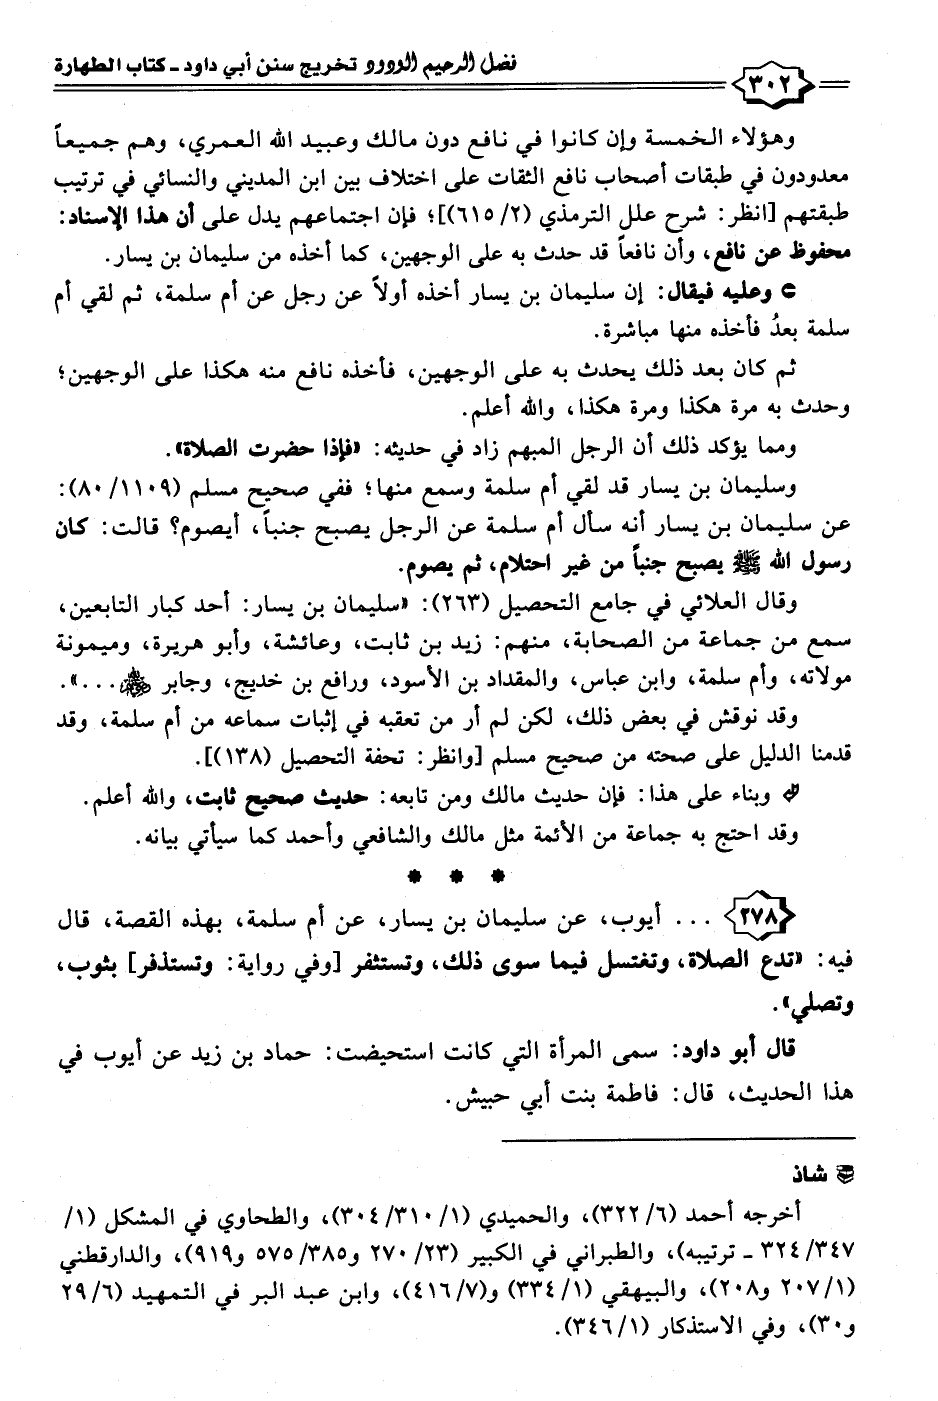 فضل الرحيم الودود تخريج سنن أبي داود ـ كتاب الطهارة
٣٠٢
وهؤلاء الخمسة وإن كانوا في نافع دون مالك وعبيد الله العمري، وهم جميعاً
معدودون في طبقات أصحاب نافع الثقات على اختلاف بين ابن المديني والنسائي في ترتيب
طبقتهم [انظر: شرح علل الترمذي (٢/ ٦١٥)]؛ فإن اجتماعهم يدل على أن هذا الإسناد:
محفوظ عن نافع، وأن نافعاً قد حدث به على الوجهين، كما أخذه من سليمان بن يسار.
وعليه فيقال: إن سليمان بن يسار أخذه أولاً عن رجل عن أم سلمة، ثم لقي أم
سلمة بعدُ فأخذه منها مباشرة.
ثم كان بعد ذلك يحدث به على الوجهين، فأخذه نافع منه هكذا على الوجهين؛
وحدث به مرة هكذا ومرة هكذا، والله أعلم.
ومما يؤكد ذلك أن الرجل المبهم زاد في حديثه: «فإذا حضرت الصلاة».
وسليمان بن يسار قد لقي أم سلمة وسمع منها؛ ففي صحيح مسلم (٨٠/١١٠٩):
عن سليمان بن يسار أنه سأل أم سلمة عن الرجل يصبح جنباً، أيصوم؟ قالت: كان
رسول الله ﷺ يصبح جنباً من غير احتلام، ثم يصوم.
وقال العلائي في جامع التحصيل (٢٦٣): «سليمان بن يسار: أحد كبار التابعين،
سمع من جماعة من الصحابة، منهم: زيد بن ثابت، وعائشة، وأبو هريرة، وميمونة
مولاته، وأم سلمة، وابن عباس، والمقداد بن الأسود، ورافع بن خديج، وجابر ...».
وقد نوقش في بعض ذلك، لكن لم أر من تعقبه في إثبات سماعه من أم سلمة، وقد
قدمنا الدليل على صحته من صحيح مسلم [وانظر: تحفة التحصيل (١٣٨)].
وبناء على هذا: فإن حديث مالك ومن تابعه: حديث صحيح ثابت، والله أعلم.
وقد احتج به جماعة من الأئمة مثل مالك والشافعي وأحمد كما سيأتي بيانه.
* * *
٢٧٨ ... أيوب، عن سليمان بن يسار، عن أم سلمة، بهذه القصة، قال
فيه: «تدع الصلاة، وتغتسل فيما سوى ذلك، وتستثفر [وفي رواية: وتستذفر] بثوب،
وتصلي».
قال أبو داود: سمى المرأة التي كانت استحيضت: حماد بن زيد عن أيوب في
هذا الحديث، قال: فاطمة بنت أبي حبيش.
شاذ
أخرجه أحمد (٦/ ٣٢٢)، والحميدي (١/ ٣١٠/ ٣٠٤)، والطحاوي في المشكل (١/
٣٢٤/٣٤٧ ـ ترتيبه)، والطبراني في الكبير (٢٣/ ٢٧٠ و٣٨٥/ ٥٧٥ و٩١٩)، والدارقطني
(١/ ٢٠٧ و٢٠٨)، والبيهقي (١/ ٣٣٤) و(٧/ ٤١٦)، وابن عبد البر في التمهيد (٦/ ٢٩
و٣٠)، وفي الاستذكار (١/ ٣٤٦).